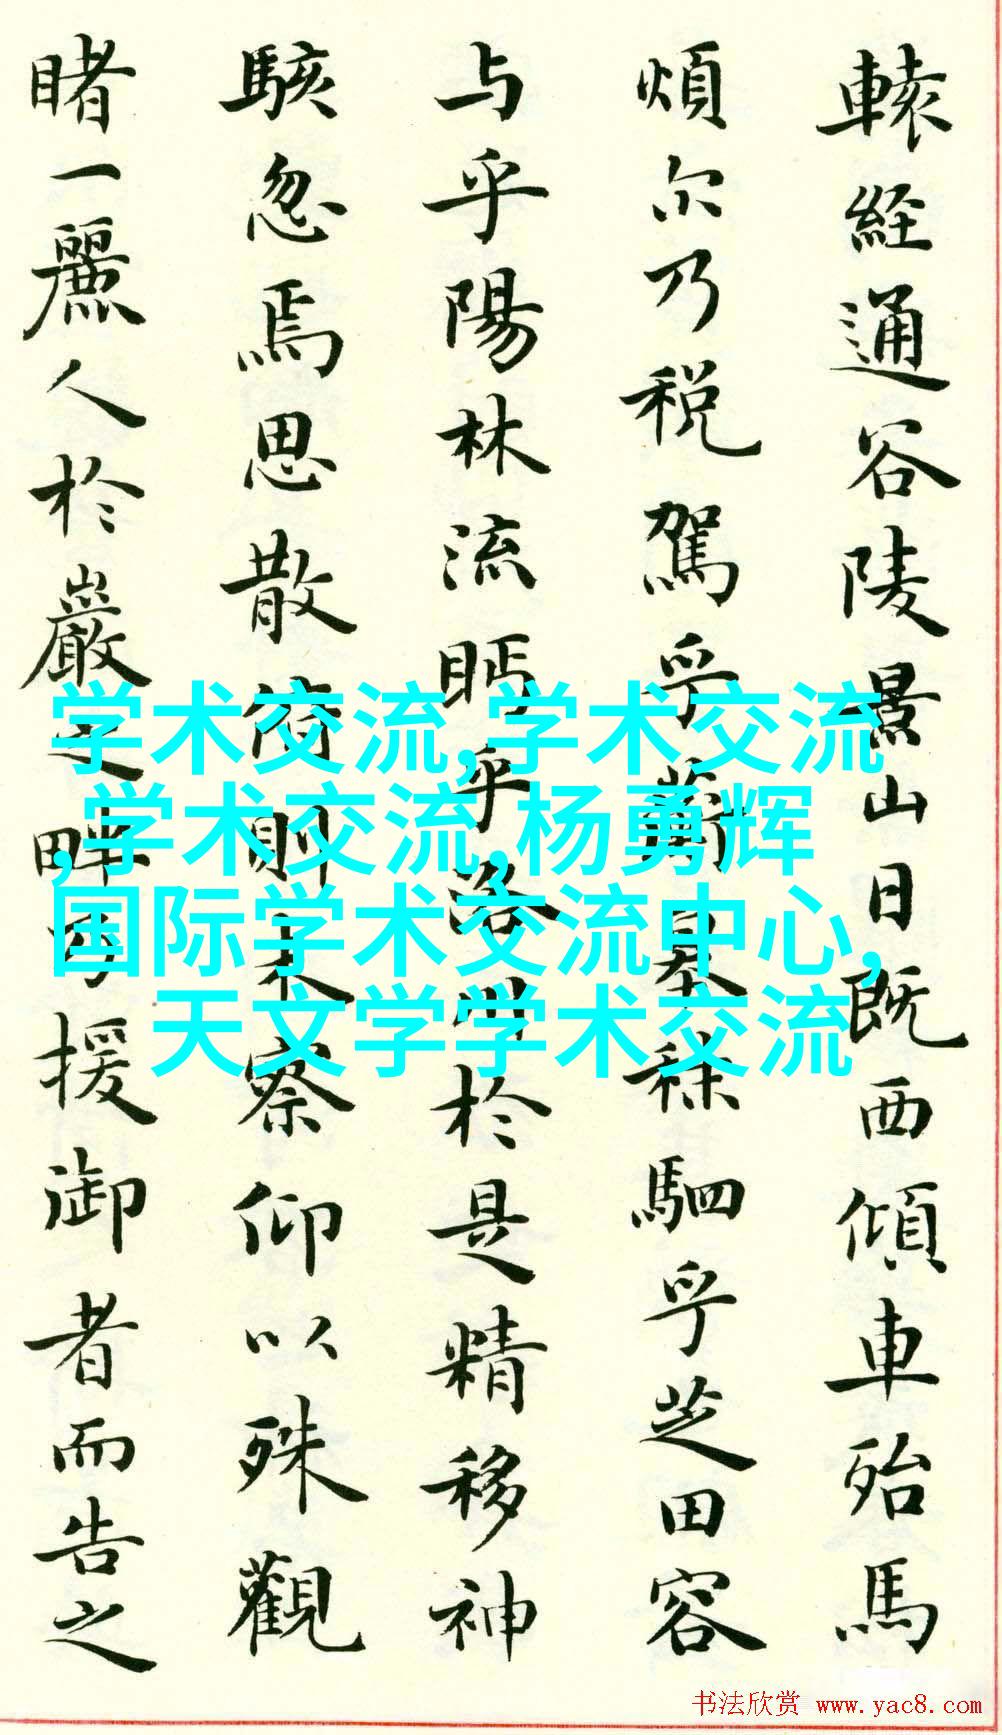 轅經通谷陵景山日既西傾車殆馬
煩尔乃税駕乎蘅皋秣駟乎芝田容
与乎陽林流眄乎洛川於是精移神
駭忽焉思散俯則未察仰以殊觀
睹一麗人於巖之畔乃援御者而告之
学术交流,学术交流
,学术交流,杨勇辉
国际学术交流中心,
天文学学术交流
书法欣赏 www.yac8.com